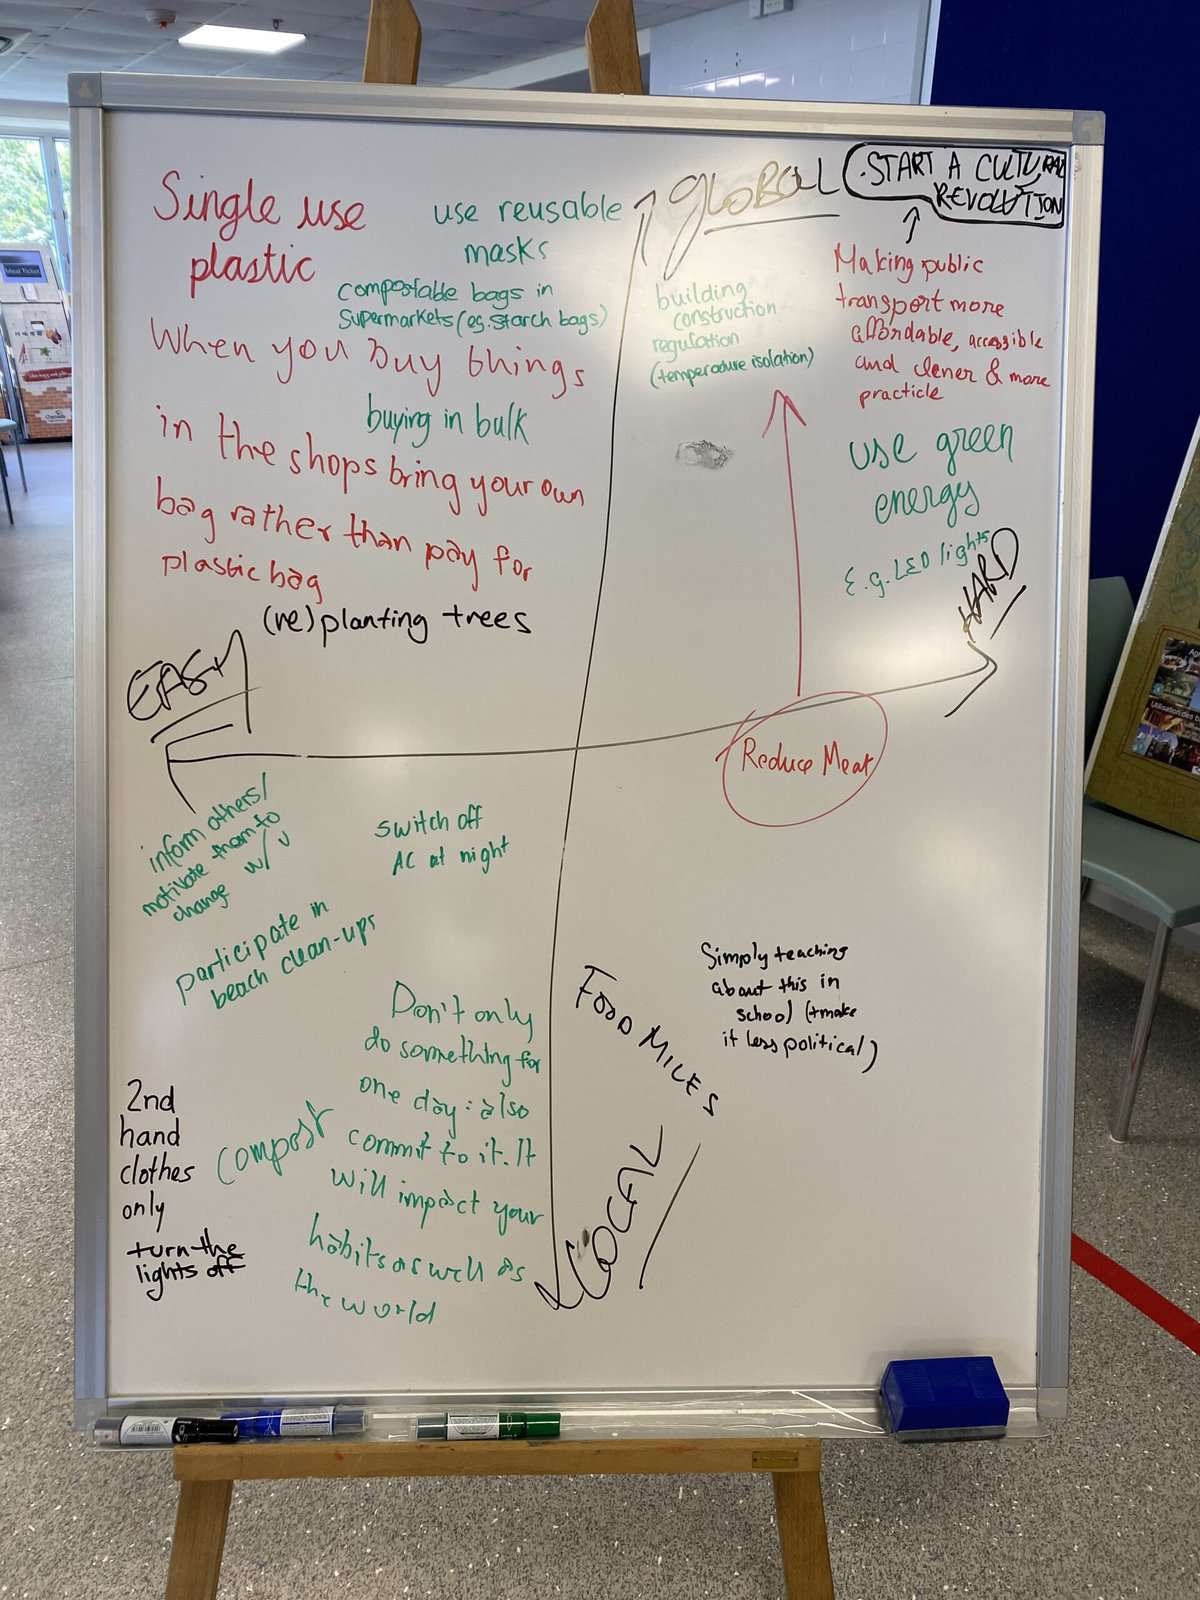 Single use
plastic
use reusable
masks
compostable bags in
supermarkets (eg. starch bags)
When you buy things
buying in bulk
in the shops bring your own
bag rather than pay for
plastic bag
(re) planting trees
GLOBAL
START A CULTURAL
REVOLUTION
building
construction
regulation
(temperadure isolation)
Making public
transport more
affordable, accessible
and clener & more
practicle
use green
energy
E.g. LED lights
HARD
EASY
Reduce Meat
inform others/
motivate them to
change w/ u
switch off
AC at night
participate in
beach clean-ups
Don't only
do something for
one day: also
commit to it. It
will impact your
habits as well as
the world
compost
2nd
hand
clothes
only
turn the
lights off
FOOD MILES
LOCAL
Simply teaching
about this in
school (+make
it less political)
Meal Ticket